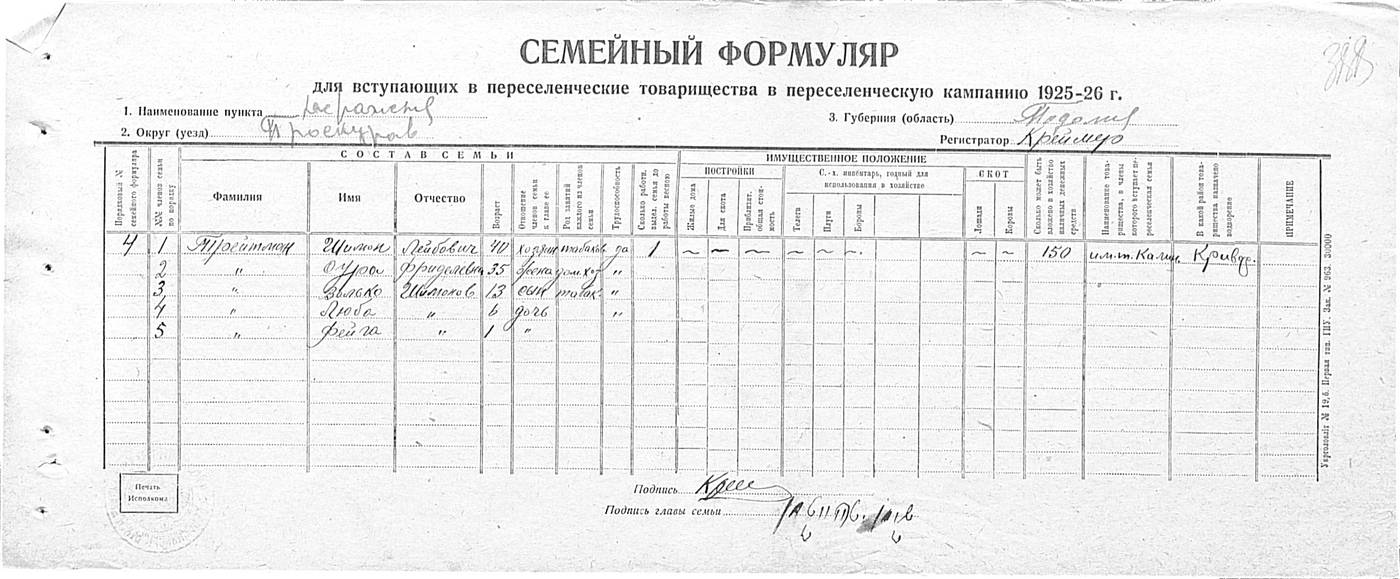 СЕМЕЙНЫЙ ФОРМУЛЯР
для вступающих в переселенческие товарищества в переселенческую кампанию 1925-26 г.
1. Наименование пункта
3. Губерния (область) Подолия
2. Округ (уезд) Проскуров
Регистратор Креймер
Порядковый № семейного формуляра
№№ членов семьи по порядку
СОСТАВ СЕМЬИ
Фамилия
Имя
Отчество
Возраст
Отношение членов семьи к главе ее
Род занятий каждого из членов семьи
Трудоспособность
Сколько работн. выдел. семья до работы весною
ИМУЩЕСТВЕННОЕ ПОЛОЖЕНИЕ
ПОСТРОЙКИ
Жилые дома
Для скота
Приблизит. общая стоимость
С.-х. инвентарь, годный для использования в хозяйстве
Телеги
Плуги
Бороны
СКОТ
Лошади
Коровы
Сколько может быть вложено в хозяйство наличных денежных средств
Наименование товарищества, в члены которого вступает переселенческая семья
В какой район товарищества назначено водворение
ПРИМЕЧАНИЕ
4 1 Трейтман Шимон Лейбович 40 хозяин табаков да 1 ~ ~ ~ ~ ~ ~ ~ ~ 150 им. т. Калин.
2 " Сура Фриделевна 35 жена дом. хоз "
3 " Волько Шимонов 13 сын табак "
4 " Люба " 6 дочь "
5 " Фейга " 1 "
Печать Исполкома
Подпись
Подпись главы семьи
Укрголовліт № 19,б. Первая тип. ГИУ. Зак. № 963. 30000